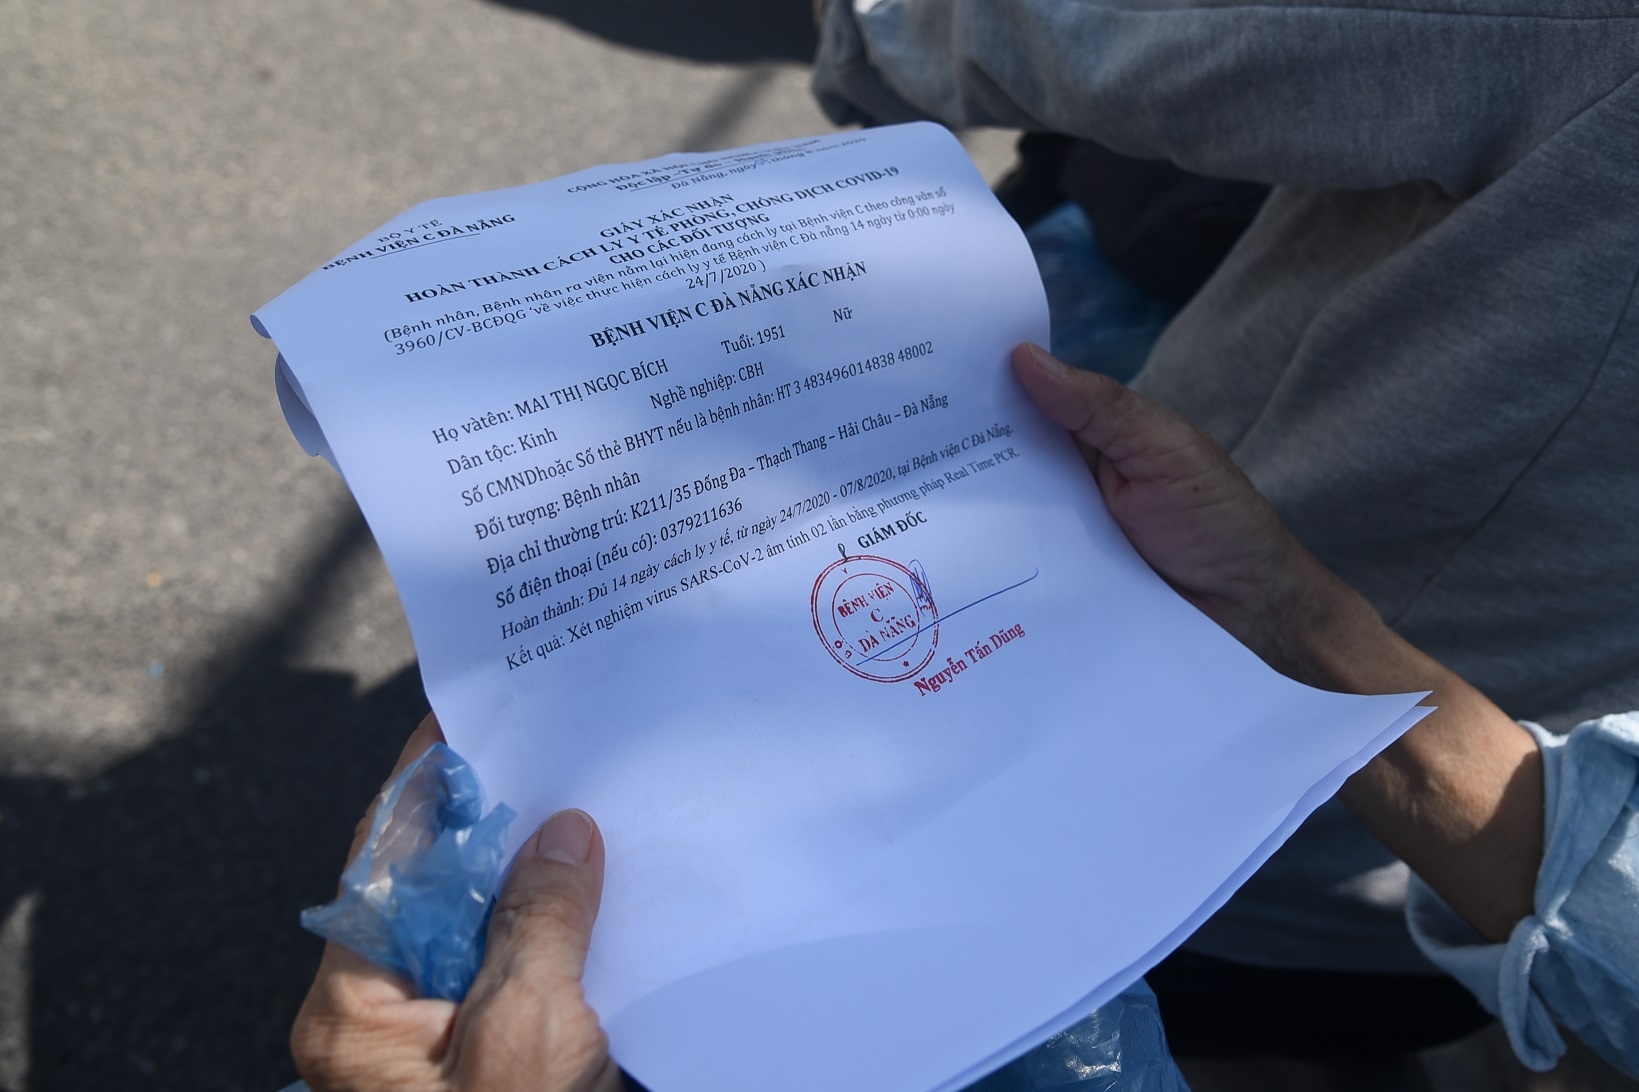 BỘ Y TẾ
BỆNH VIỆN C ĐÀ NẴNG
CỘNG HÒA XÃ HỘI
Độc lập - Tự do - Hạnh
Đà Nẵng, ngày tháng 8 năm 2020
GIẤY XÁC NHẬN
HOÀN THÀNH CÁCH LY Y TẾ PHÒNG, CHỐNG DỊCH COVID-19
CHO CÁC ĐỐI TƯỢNG
(Bệnh nhân, Bệnh nhân ra viện nằm lại hiện đang cách ly tại Bệnh viện C theo công văn số
3960/CV-BCĐQG 'về việc thực hiện cách ly y tế Bệnh viện C Đà nẵng 14 ngày từ 0:00 ngày
24/7/2020 )
BỆNH VIỆN C ĐÀ NẴNG XÁC NHẬN
Họ vàtên: MAI THỊ NGỌC BÍCH Tuổi: 1951 Nữ
Dân tộc: Kinh Nghề nghiệp: CBH
Số CMNDhoặc Số thẻ BHYT nếu là bệnh nhân: HT 3 483496014838 48002
Đối tượng: Bệnh nhân
Địa chỉ thường trú: K211/35 Đống Đa – Thạch Thang – Hải Châu – Đà Nẵng
Số điện thoại (nếu có): 0379211636
Hoàn thành: Đủ 14 ngày cách ly y tế, từ ngày 24/7/2020 - 07/8/2020, tại Bệnh viện C Đà Nẵng.
Kết quả: Xét nghiệm virus SARS-CoV-2 âm tính 02 lần bằng phương pháp Real Time PCR.
GIÁM ĐỐC
BỆNH VIỆN
C
ĐÀ NẴNG
Nguyễn Tấn Dũng